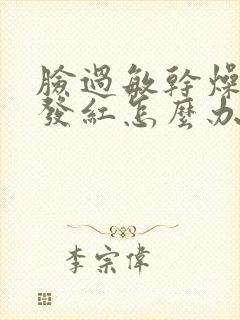 臉過敏幹燥
發紅怎麼办
李宗偉